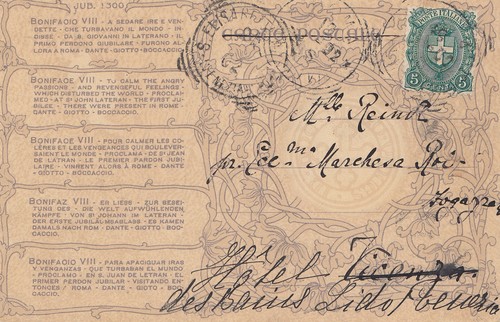 JUB. 1300
BONIFACIO VIII - A SEDARE IRE E VEN-
DETTE - CHE TURBAVANO IL MONDO - IN-
DISSE - DA S. GIOVANNI IN LATERANO - IL
PRIMO PERDONO GIUBILARE - FURONO AL-
LORA A ROMA - DANTE - GIOTTO - BOCCACCIO:
BONIFACE VIII - TU CALM THE ANGRY
PASSIONS - AND REVENGEFUL FEELINGS -
WHICH DISTURBED THE WORLD - PROCLAI-
MED - AT ST JOHN LATERAN - THE FIRST JU-
BILEE - THERE WERE PRESENT IN ROME -
DANTE - GIOTTO - BOCCACCIO.
BONIFACE VIII - POUR CALMER LES CO-
LÈRES ET LES VENGEANCES QUI BOULEVEN-
SAIENT LE MONDE - PROCLAMA - DE ST JEAN
DE LATRAN - LE PREMIER PARDON JUBI-
LAIRE - VINRENT ALORS À ROME - DANTE
- GIOTTO - BOCCACCIO.
BONIFAZ VIII - ER LIESS - ZUR BESEI-
TUNG DES - DIE WELT AUFWÜHLENDEN
KÄMPFE - VON ST JOHANN IM LATERAN -
DER ERSTE JUBILÄUMSABLASS - ES KAMEN
DAMALS NACH ROM - DANTE - GIOTTO - BOC-
CACCIO.
BONIFACIO VIII - PARA APACIGUAR IRAS
Y VENGANZAS - QUE TURBABAN EL MUNDO
- PROCLAMÓ - EN S. JUAN DE LETRAN - EL
PRIMER PERDON JUBILAR - VISITANDO EN-
TONCES / ROMA - DANTE - GIOTTO - BOC-
CACCIO.
POSTE ITALIANE
5 5
CENT.
Mlle Reindt
pr. Ecc.ma Marchesa Roi
Fogazzaro
Vicenza
Hôtel
des bains Lido Venezia